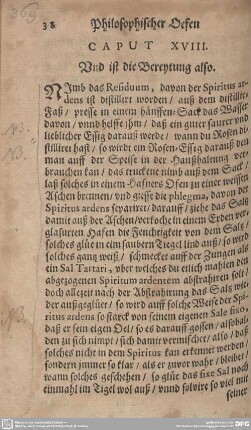 369
38 Philosophischer Oefen
CAPUT XVIII.
Vnd ist die Bereytung also.
NImb das Residuum, davon der Spiritus ar-
dens ist distilliert worden / auß dem distillir-
Faß / presse in einem hänffen-Sack das Wasser
davon / vnnd helffe ihm / daß ein guter saurer vnd
lieblicher Essig darauß werde / wann du Rosen da
stilliret hast / so wirdt ein Rosen-Essig darauß den
man auff der Speise in der Haußhaltung ver-
brauchen kan / das truckene nimb auß dem Sack /
laß solches in einem Hafners Ofen zu einer weissen
Aschen brennen / vnd giesse die phlegma, davon der
Spiritus ardens separiret / darauff / ziehe das Saltz
damit auß der Aschen / verkoche in einem Erden ver-
glasurten Hafen die Feuchtigkeit von dem Saltz /
solches glüe in eim saubern Tiegel lind auß / so wird
solches gantz weiß / schmecket auff der Zungen als
ein Sal Tartari, vber welches du etlich mahlen den
abgezogenen Spiritum ardentem abstrahiren solt /
doch allezeit nach der Abstrahirung das Saltz wie-
der außgeglüet / so wird auff solche Weise der Spi-
ritus ardens so starck von seinem eigenen Sale fixo,
daß er sein eigen Oel / so es darauß gossen / alsobal-
den zu sich nimpt / sich damit vermischet / also / daß
solches nicht in dem Spiritus kan erkennet werden /
sondern jmmer so klar / als er zuvor war / bleibet /
wann solches geschehen / so glüe das fixe Sal noch
einmahl im Tigel wol auß / vnnd solvire so viel mit
seiner
NB.
NB.